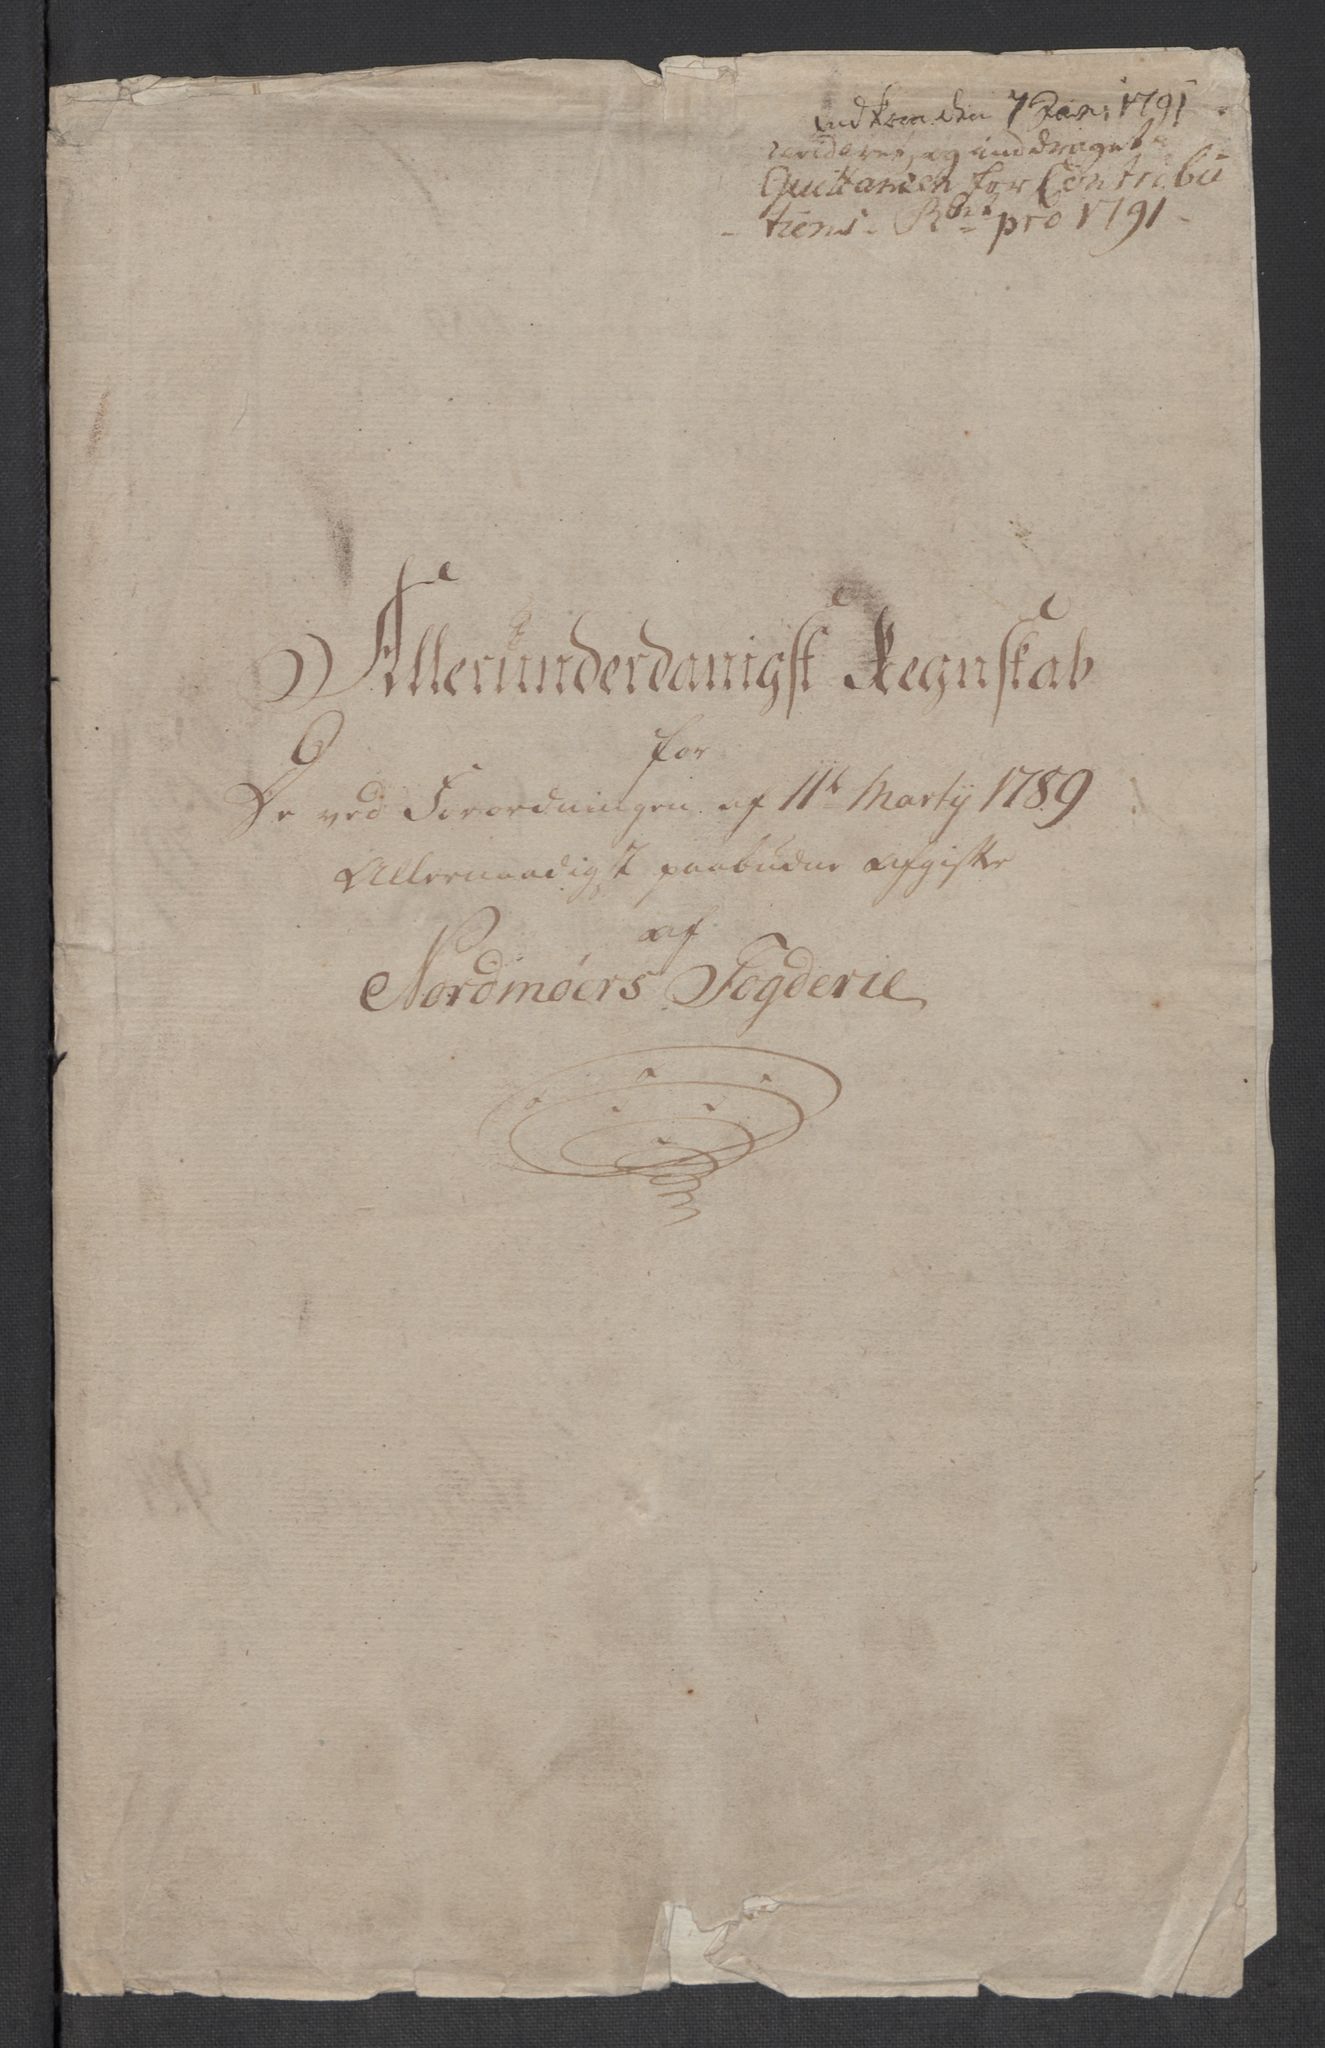 indkom den 7 Jan: 1791
revideret, og inddraget
Quittancen for Contribu
tions. Rgnt pro 1791
Allerunderdanigst Regnskab
for
De ved Forordningen af 11te Martij 1789
Allernaadigst paabudne Afgifter
af
Nordmøers Fogderie